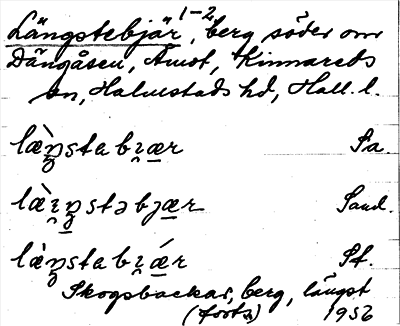 Längstebjär 1-2, berg söder om
Dängåsen, Amot, Kinnareds
sn, Halmstads hd, Hall. l.
læ̀ŋstabi̯ær Sa.
læ̀i̯ŋstəbjær Sand.
læ̀ŋstabi̯ǽr Sf.
Skogsbackar, berg, längst
(forts.) 1956